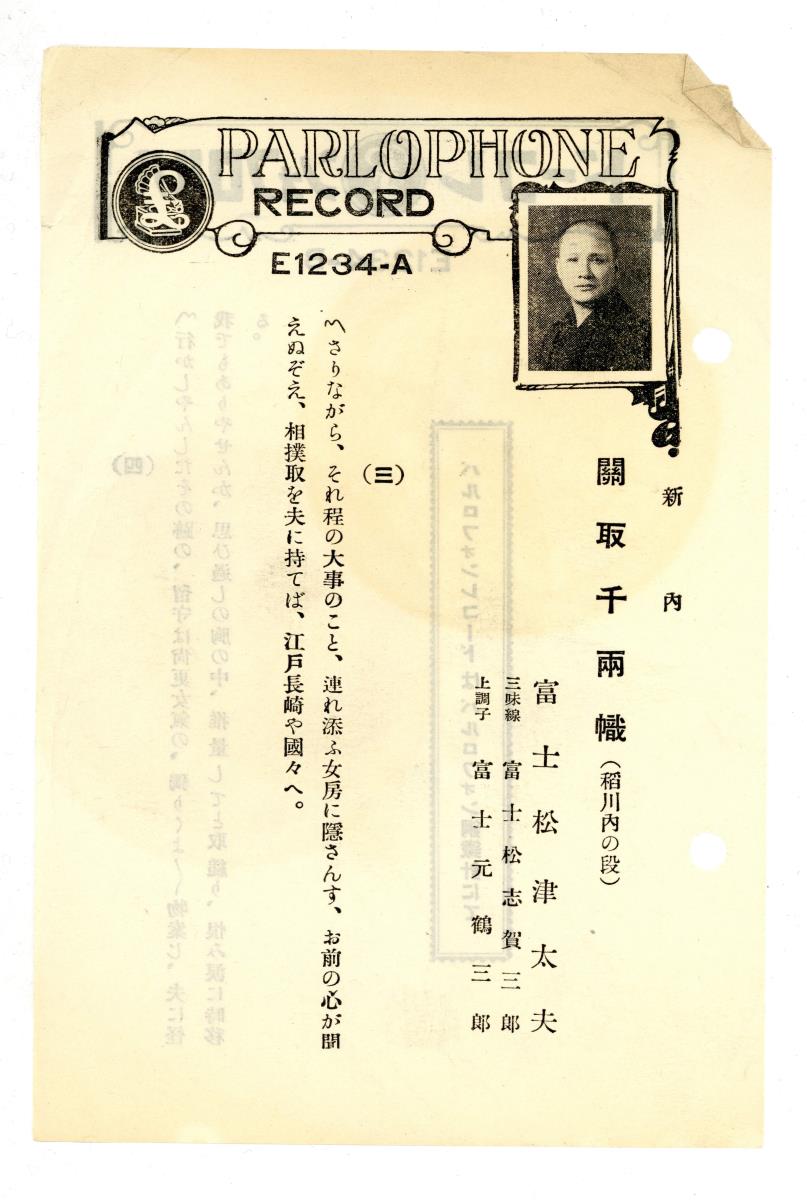 PARLOPHONE
RECORD
E1234-A
新內
關取千兩幟(稻川內の段)
富士松津太夫
三味線 富士松志賀三郎
上調子 富士元鶴三郎
(三)
〽さりながら、それ程の大事のこと、連れ添ふ女房に隱さんす、お前の心が聞
えぬぞえ、相撲取を夫に持てば、江戶長崎や國々へ。